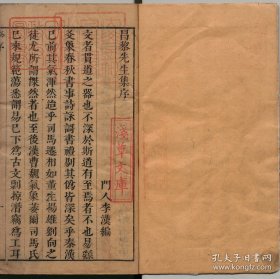 昌黎先生集序
門人李漢編
文者貫道之器也不深於斯道有至焉者不也易繇
爻象春秋書事詩詠歌書禮剔其偽皆深矣乎秦漢
已前其氣渾然迨乎司馬遷相如董生揚雄劉向之
徒尤所謂傑然者也至後漢曹魏氣象萎爾司馬氏
已來規範蕩悉謂易已下為古文剽掠潛竊為工耳
淺草文庫
孔夫子旧书网